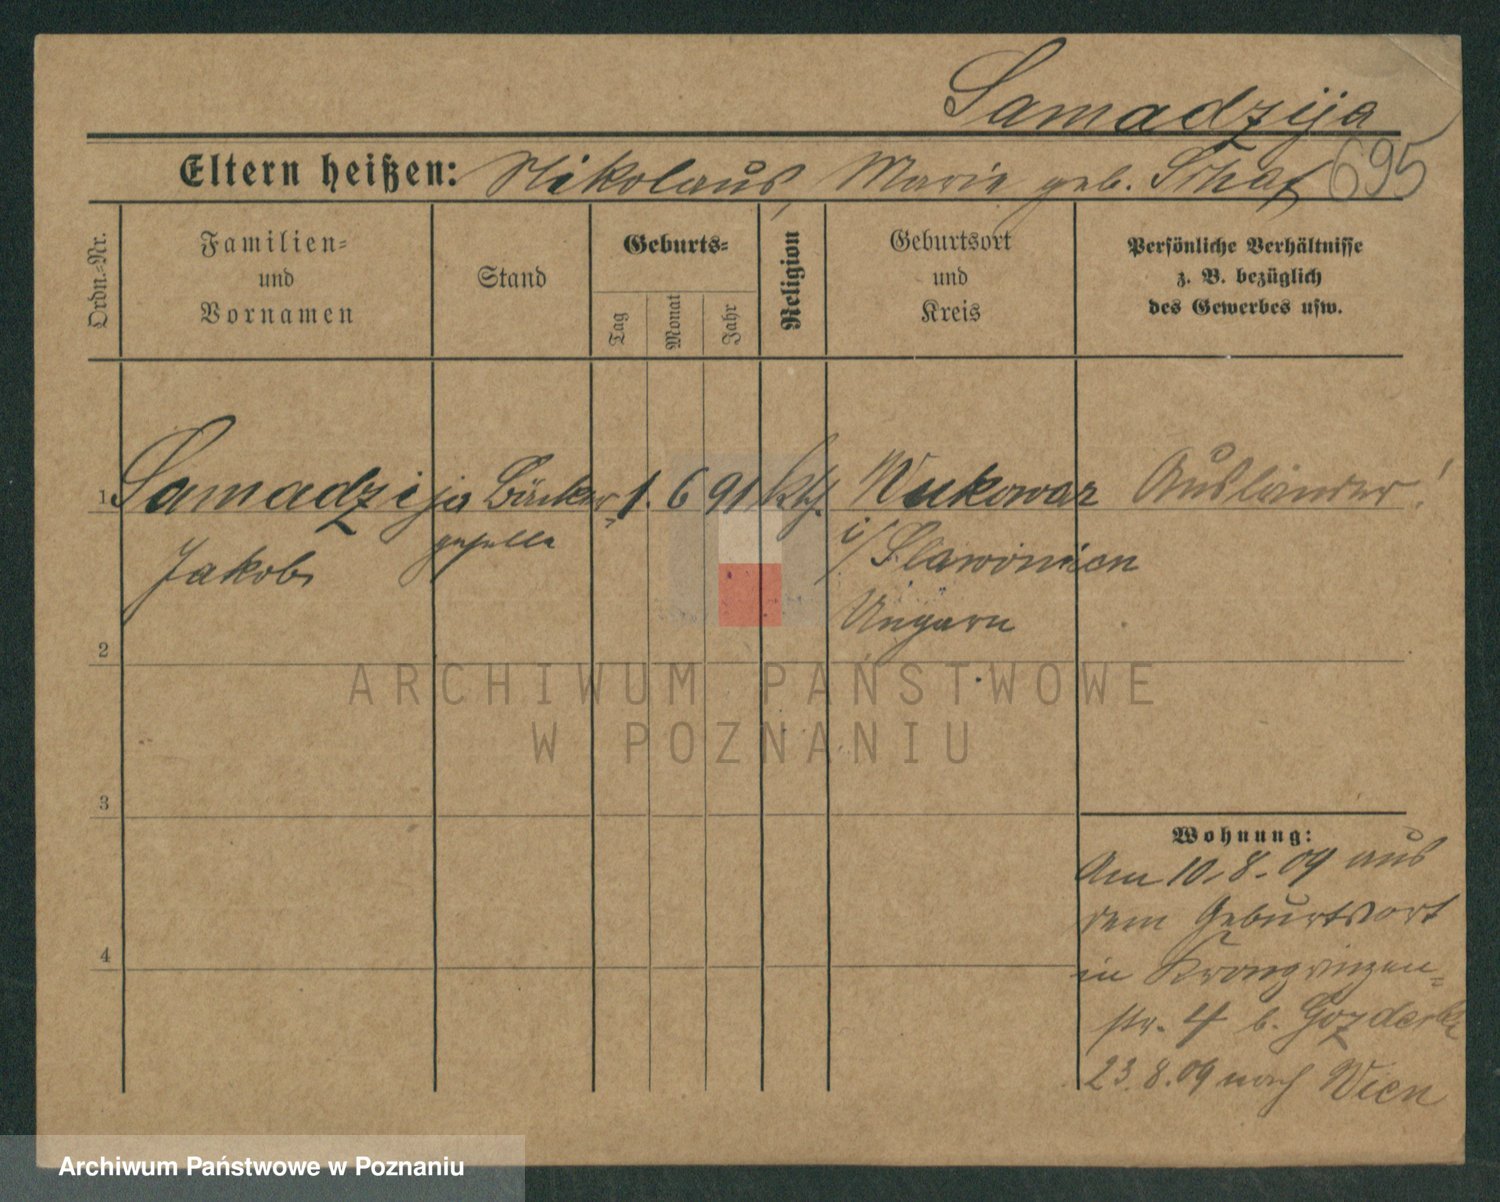 Samadzija
Eltern heißen: Nikolaus, Marie geb.
695
Ordn.-Nr.
Familien-
und
Vornamen
Stand
Geburts-
Tag
Monat
Jahr
Religion
Geburtsort
und
Kreis
Persönliche Verhältnisse
z. B. bezüglich
des Gewerbes usw.
1 Samadzija Bäcker- 1. 6 91 kth. Wukowar Ausländer!
Jakob geselle i/Slawonien
Ungarn
2
ARCHIWUM PAŃSTWOWE
W POZNANIU
3
Wohnung:
Am 10.8.09 aus
dem Geburtsort
in Kronprinzen-
4
str. 4 b.
23.8.09 nach Wien
Archiwum Państwowe w Poznaniu